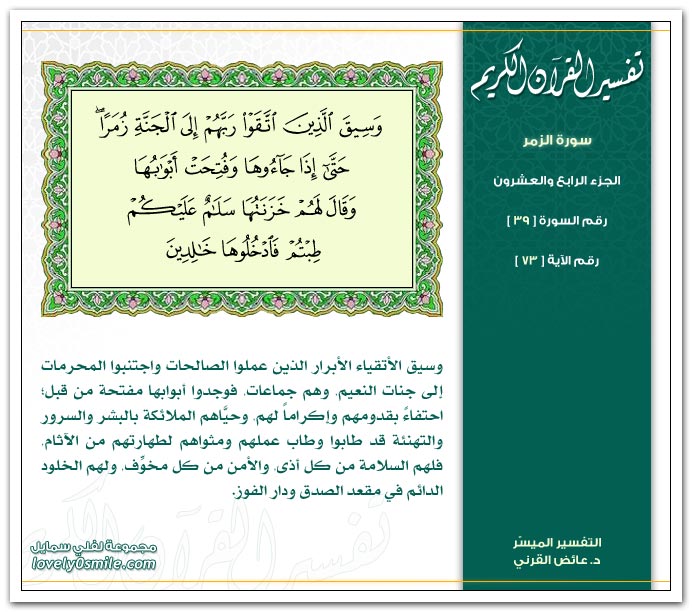 تفسير القرآن الكريم
سورة الزمر
الجزء الرابع والعشرون
رقم السورة [ ٣٩ ]
رقم الآية [ ٧٣ ]
وَسِيقَ ٱلَّذِينَ ٱتَّقَوْا۟ رَبَّهُمْ إِلَى ٱلْجَنَّةِ زُمَرًا ۖ
حَتَّىٰٓ إِذَا جَآءُوهَا وَفُتِحَتْ أَبْوَٰبُهَا
وَقَالَ لَهُمْ خَزَنَتُهَا سَلَٰمٌ عَلَيْكُمْ
طِبْتُمْ فَٱدْخُلُوهَا خَٰلِدِينَ
وسيق الأتقياء الأبرار الذين عملوا الصالحات واجتنبوا المحرمات
إلى جنات النعيم، وهم جماعات، فوجدوا أبوابها مفتحة من قبل؛
احتفاءً بقدومهم وإكراماً لهم، وحيَّاهم الملائكة بالبشر والسرور
والتهنئة قد طابوا وطاب عملهم ومثواهم لطهارتهم من الآثام،
فلهم السلامة من كل أذى، والأمن من كل مخوِّف، ولهم الخلود
الدائم في مقعد الصدق ودار الفوز.
التفسير الميسّر
د. عائض القرني
مجموعة لفلي سمايل
lovely0smile.com
تفسير القرآن الكريم